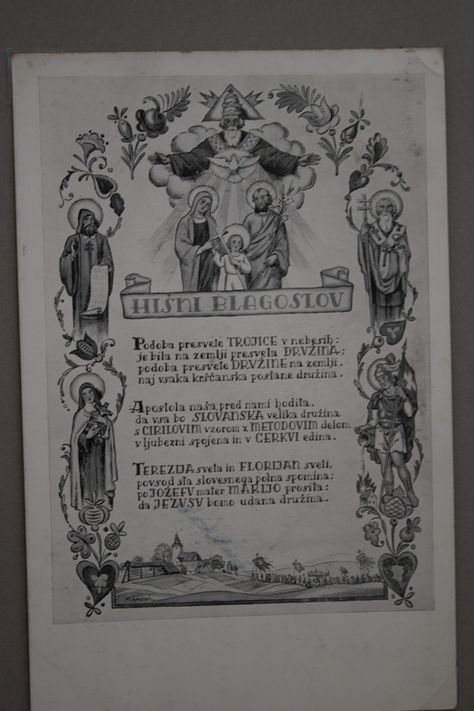 HIŠNI BLAGOSLOV
Podoba presvele TROJICE v nebesih:
je bila na zemlji presvela DRUŽINA;
podoba presvele DRUŽINE na zemlji.
naj vsaka krščanska postane družina.
Apostola naša, pred nami hodita,
da vsa bo SLOVANSKA velika družina
s CIRILOVIM vzorom z METODOVIM delom
v ljubezni spojena in v CERKVI edina.
TEREZIJA sveta in FLORIJAN sveti,
povsod sta slovesnega polna spomina;
po JOŽEFU mater MARIJO prosita:
da JEZUSU bomo udana družina.